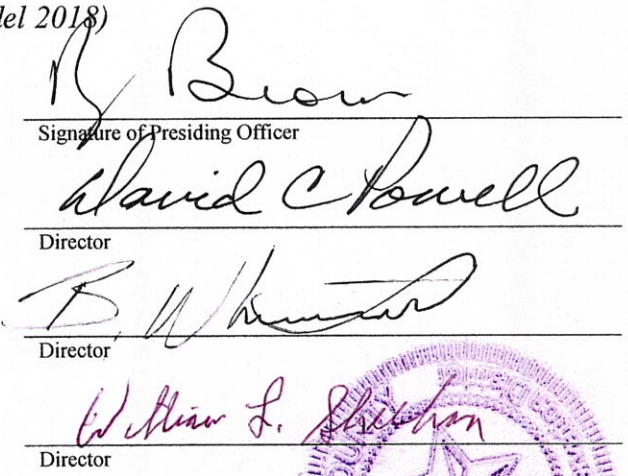 del 2018)
Brown
Signature of Presiding Officer
David C Powell
Director
B. W
Director
William L. Sheehan
Director